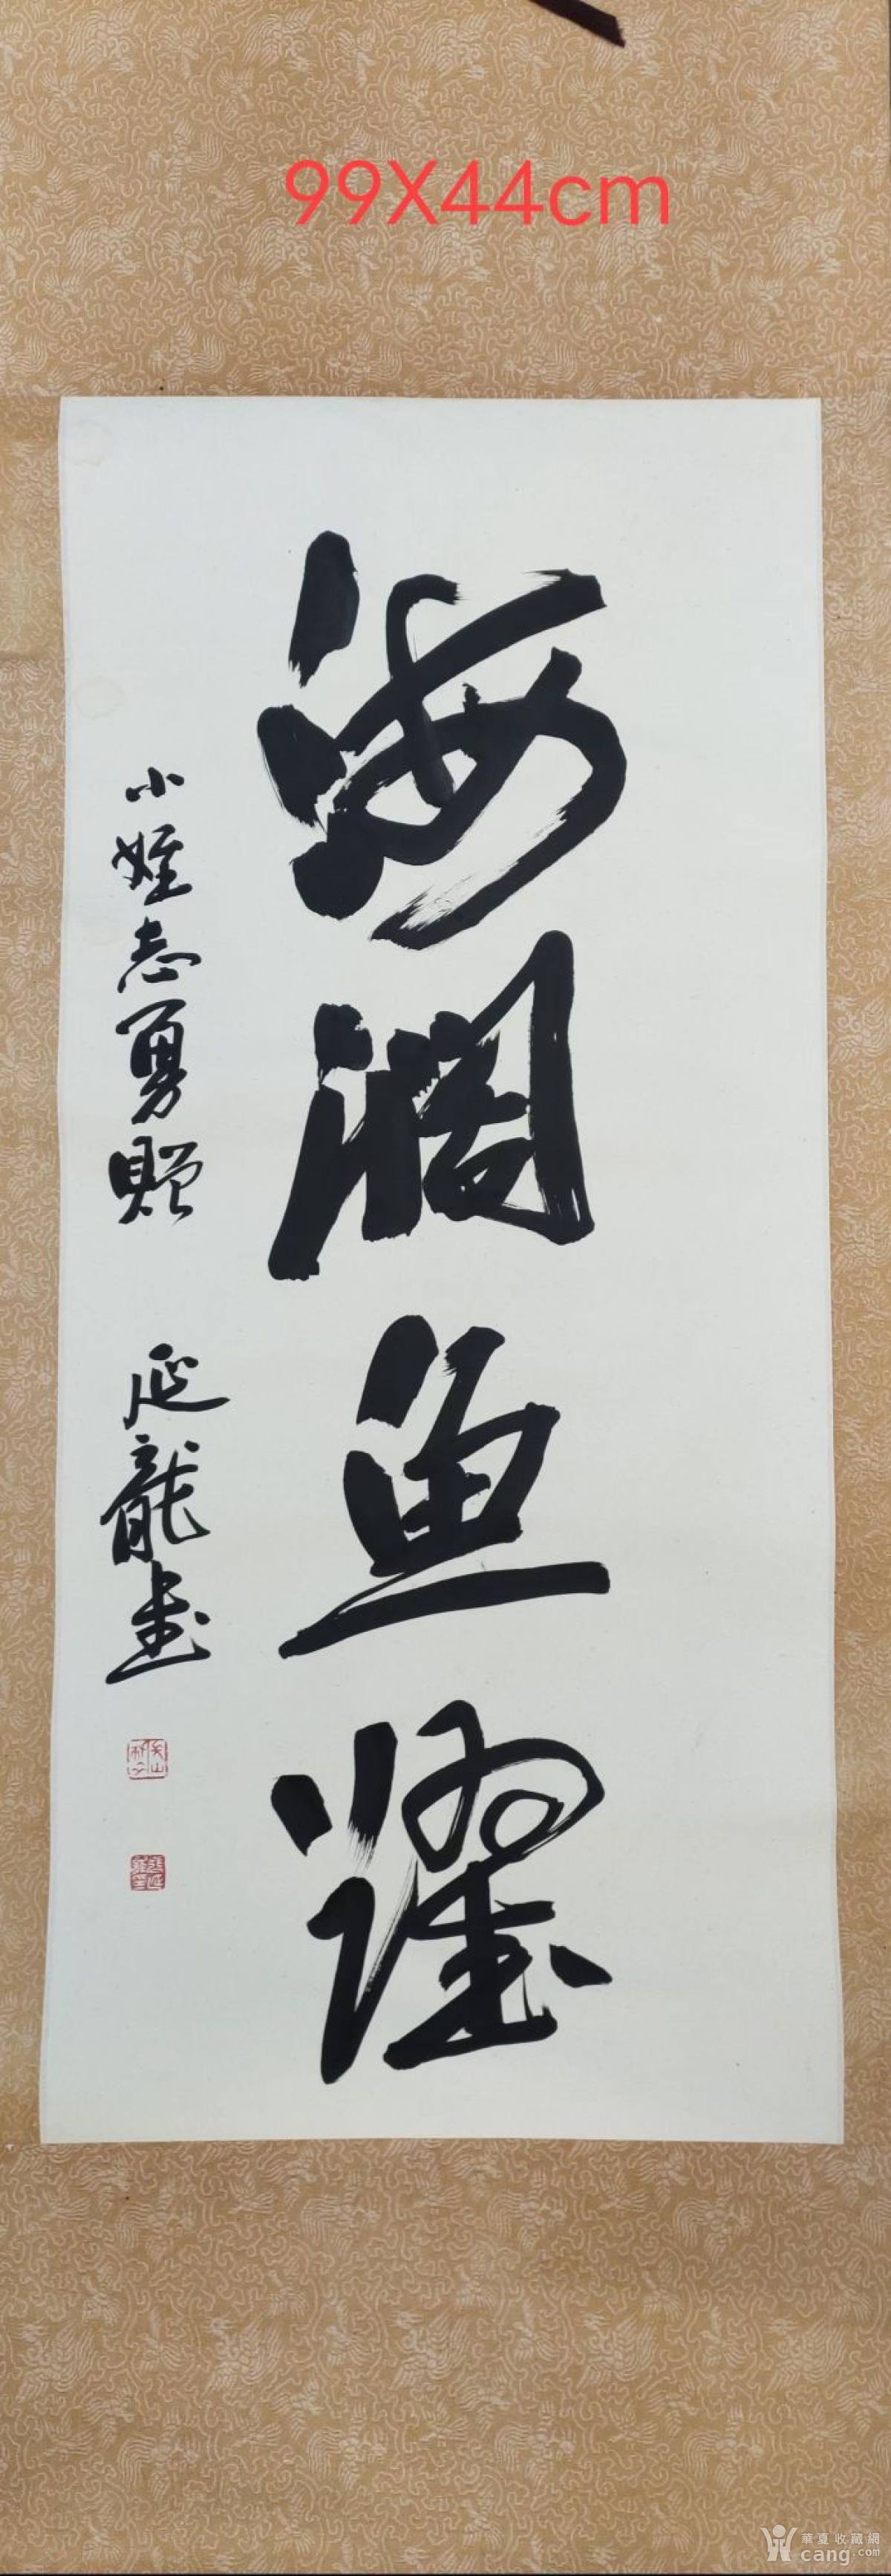 99X44cm
海阔鱼躍
小姪志勇贈
延龍書
華夏收藏網
cang.com